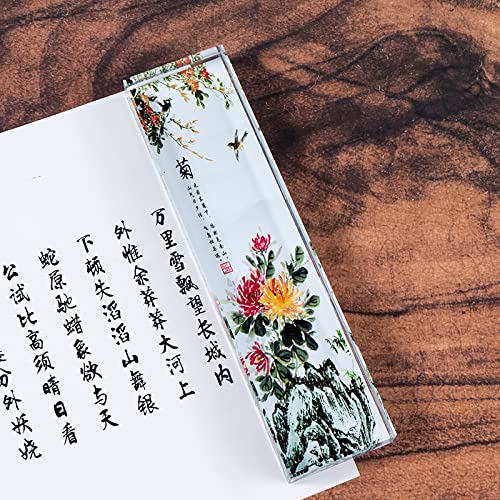 菊
万里雪飘望长城内
外惟余莽莽大河上
下顿失滔滔山舞银
蛇原驰蜡象欲与天
公试比高须晴日看
分外妖娆